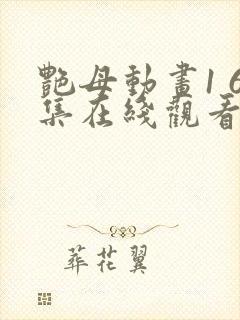 艷母動畫16
集在綫觀看
葬花翼